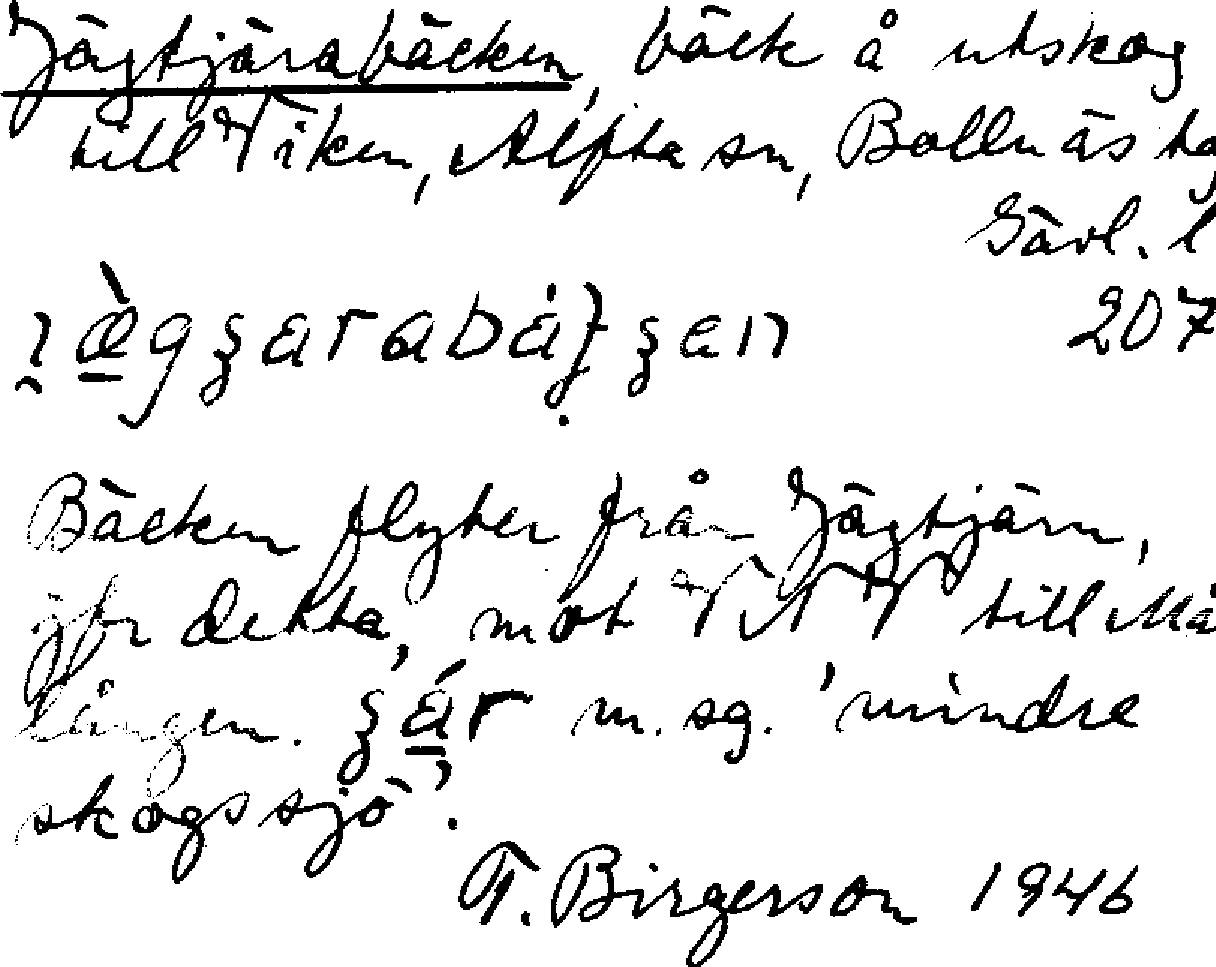 Jägtjärabäcken, bäck å utskog
till Viken, Alfta sn, Bollnäs
Gävl. l
207
Bäcken flyter från Jägtjärn,
jfr detta, mot VNV till Må
lången. m. sg. 'mindre
skogssjö'.
F. Birgerson 1946